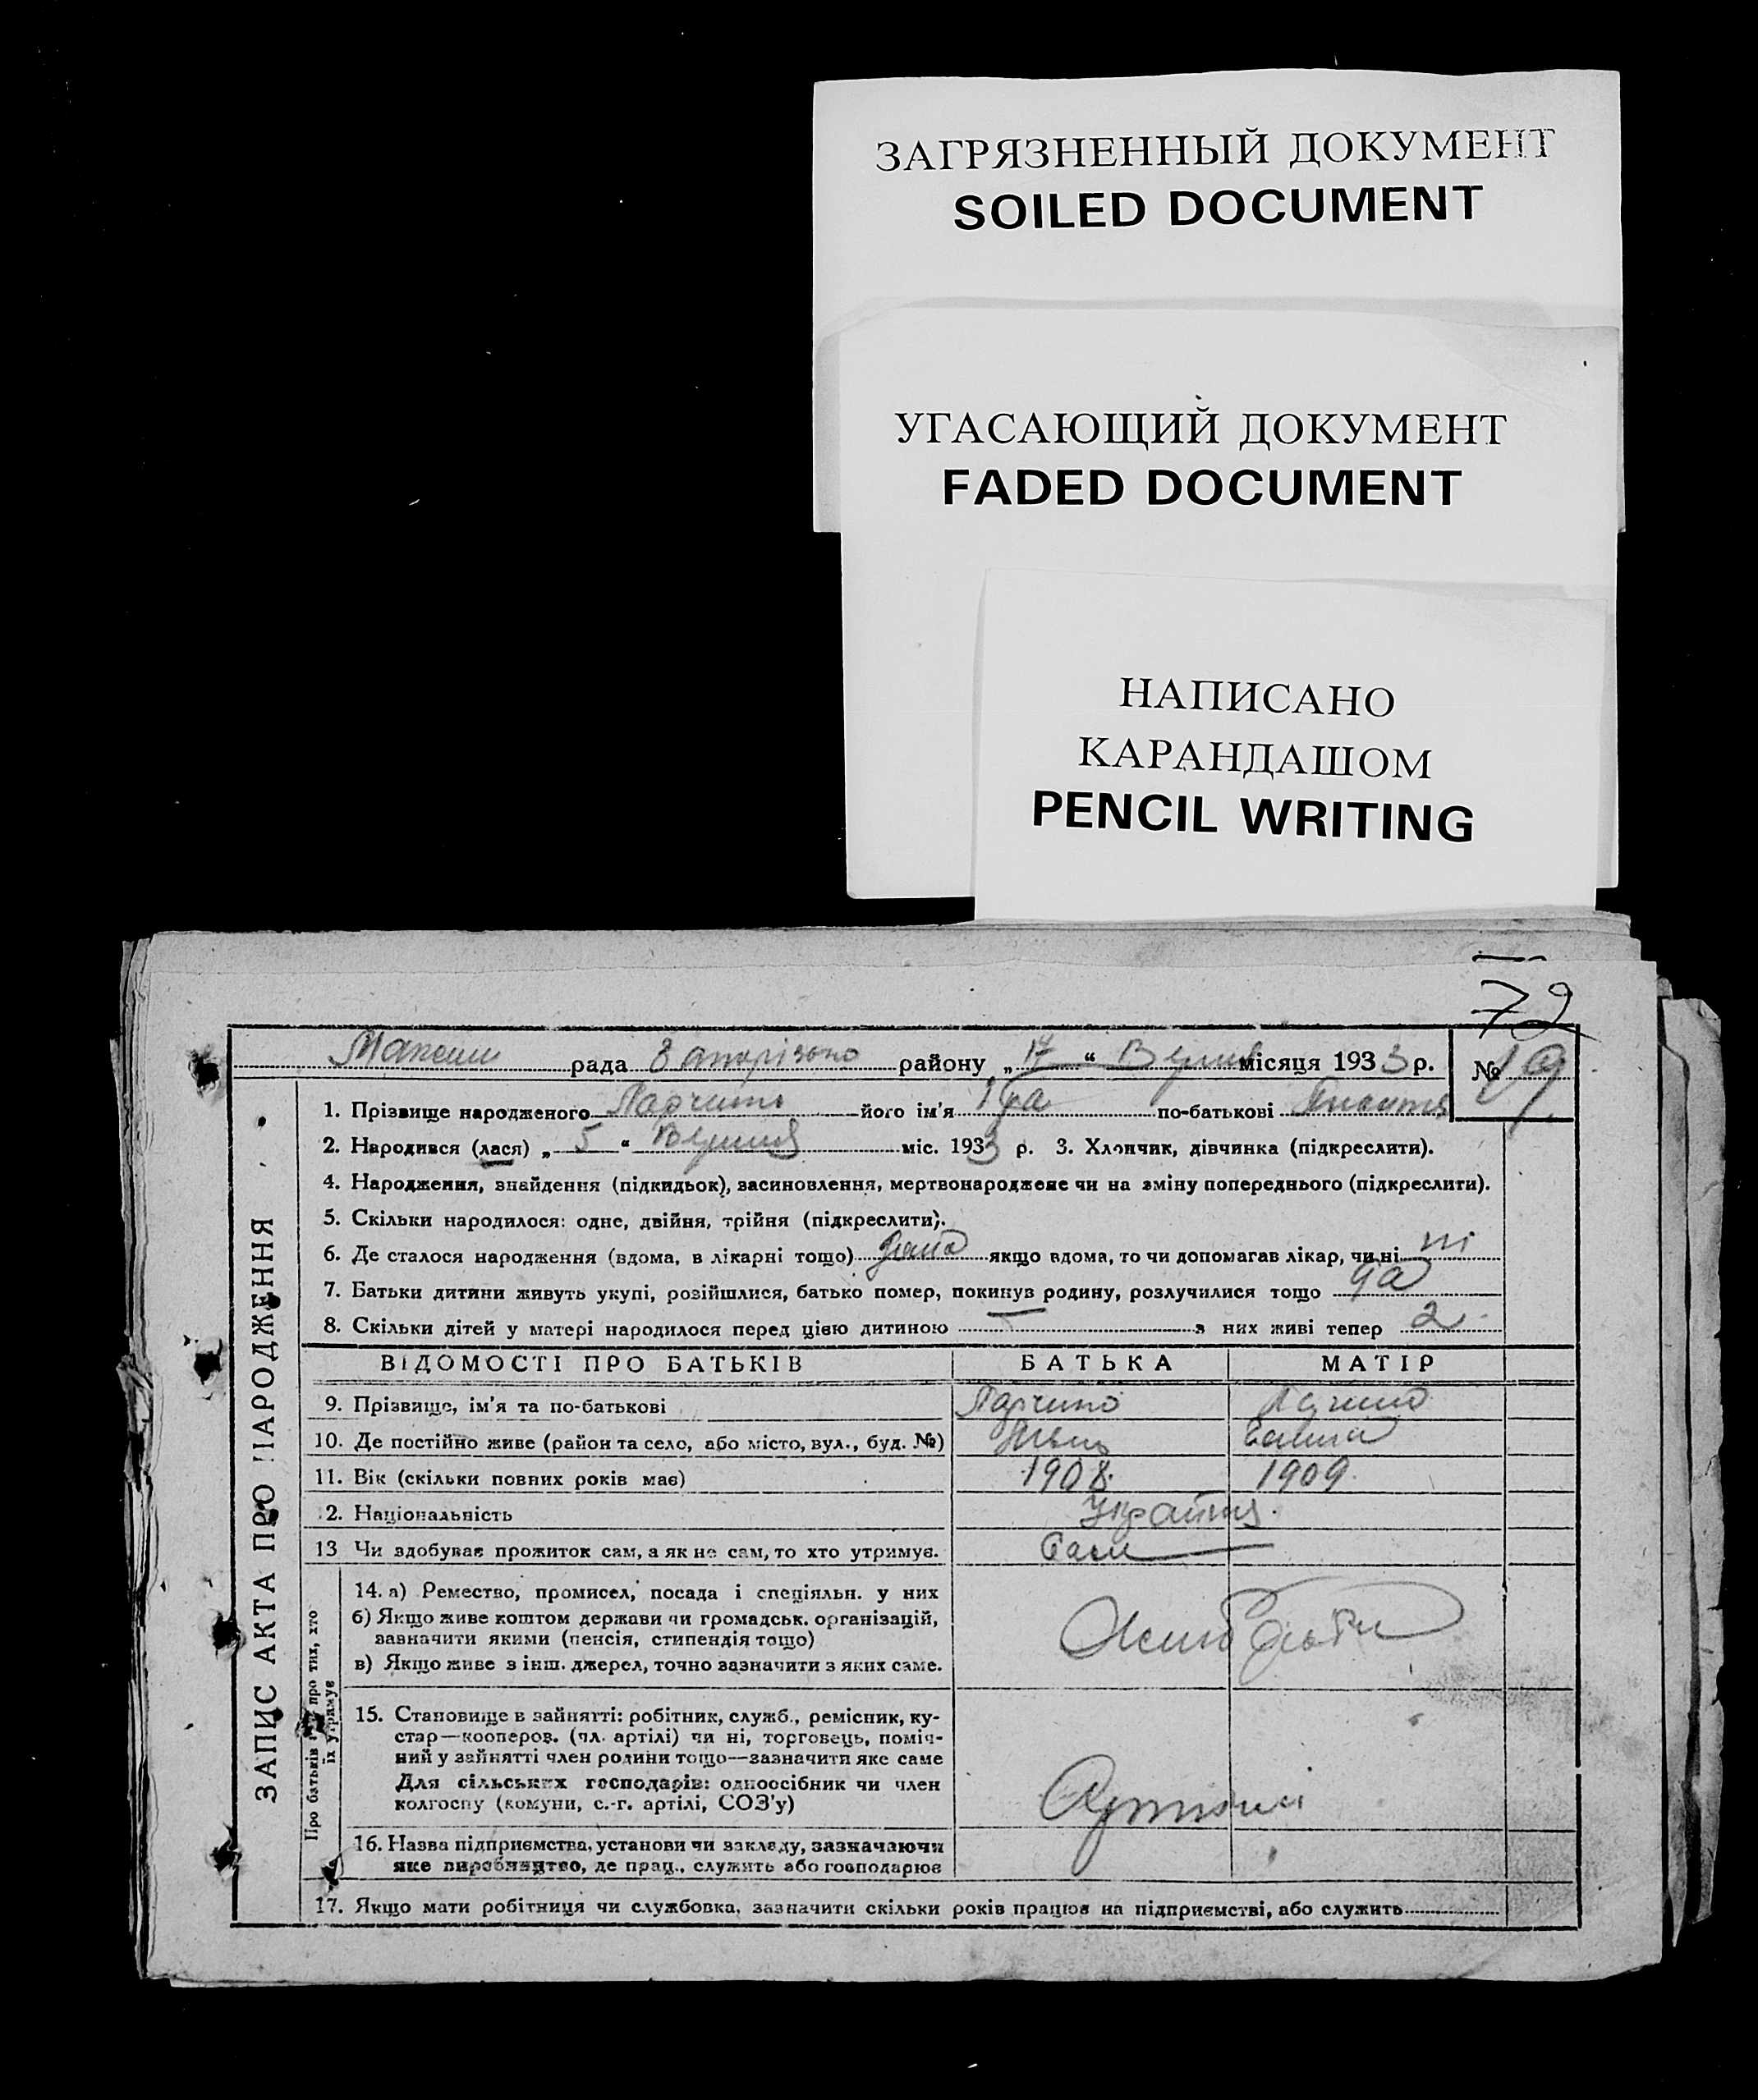 ЗАГРЯЗНЕННЫЙ ДОКУМЕНТ
SOILED DOCUMENT
УГАСАЮЩИЙ ДОКУМЕНТ
FADED DOCUMENT
НАПИСАНО
КАРАНДАШОМ
PENCIL WRITING
72
рада району „ 17 “ місяця 1933 р. № 19
1. Прізвище народженого його ім'я по-батькові
2. Народився (лася) „ 5 “ міс. 1933 р. 3. Хлопчик, дівчинка (підкреслити).
4. Народження, знайдення (підкидьок), засиновлення, мертвонароджене чи на зміну попереднього (підкреслити).
5. Скільки народилося: одне, двійня, трійня (підкреслити).
6. Де сталося народження (вдома, в лікарні тощо) якщо вдома, то чи допомагав лікар, чи ні ні
7. Батьки дитини живуть укупі, розійшлися, батько помер, покинув родину, розлучилися тощо да
8. Скільки дітей у матері народилося перед цією дитиною — з них живі тепер 2
ЗАПИС АКТА ПРО НАРОДЖЕННЯ
ВІДОМОСТІ ПРО БАТЬКІВ БАТЬКА МАТІР
9. Прізвище, ім'я та по-батькові
10. Де постійно живе (район та село, або місто, вул., буд. №)
11. Вік (скільки повних років має) 1908. 1909.
12. Національність
13 Чи здобуває прожиток сам, а як не сам, то хто утримує. Сами
Про батьків про тих, хто їх утримує
14. а) Ремество, промисел, посада і спеціяльн. у них
б) Якщо живе коштом держави чи громадськ. організацій,
зазначити якими (пенсія, стипендія тощо)
в) Якщо живе з інш. джерел, точно зазначити з яких саме.
15. Становище в зайнятті: робітник, служб., ремісник, ку-
стар—кооперов. (чл. артілі) чи ні, торговець, поміч-
ний у зайнятті член родини тощо—зазначити яке саме
Для сільських господарів: одноосібник чи член
колгоспу (комуни, с.-г. артілі, СОЗ'у)
16. Назва підприємства, установи чи закладу, зазначаючи
яке виробництво, де прац., служить або господарює
17. Якщо мати робітниця чи службовка, зазначити скільки років працює на підприємстві, або служить